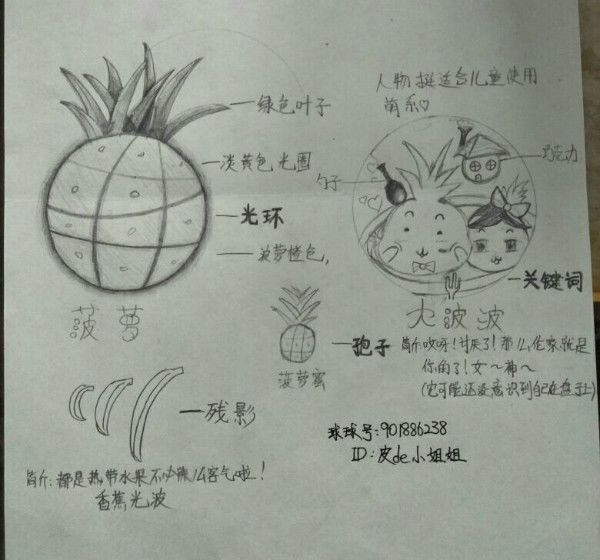 人物挺适合儿童使用
萌系♡
绿色叶子
淡黄色光圈
勺子
巧克力
光环
菠萝橙色,
关键词
菠萝
大波波
孢子
菠萝蜜
简介:哎呀!讨厌了!那么人家就是
你的了!女~帝~
(它可能还没意识到自己在盘子上)
残影
球球号:901886238
ID:皮de小姐姐
简介:都是热带水果不必那么客气啦!
香蕉光波